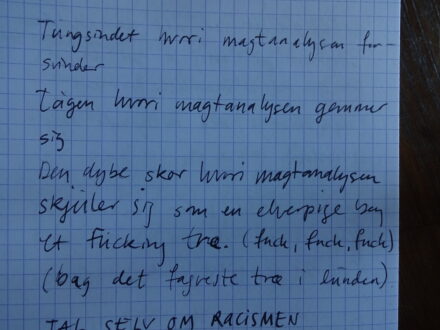 Tungsindet hvori magtanalysen for-
svinder
Tågen hvori magtanalysen gemmer
sig
Den dybe skov hvori magtanalysen
skjuler sig som en elverpige bag
et fucking træ. (fuck, fuck, fuck)
(bag det fagreste træ i lunden)
TAL SELV OM RACISMEN